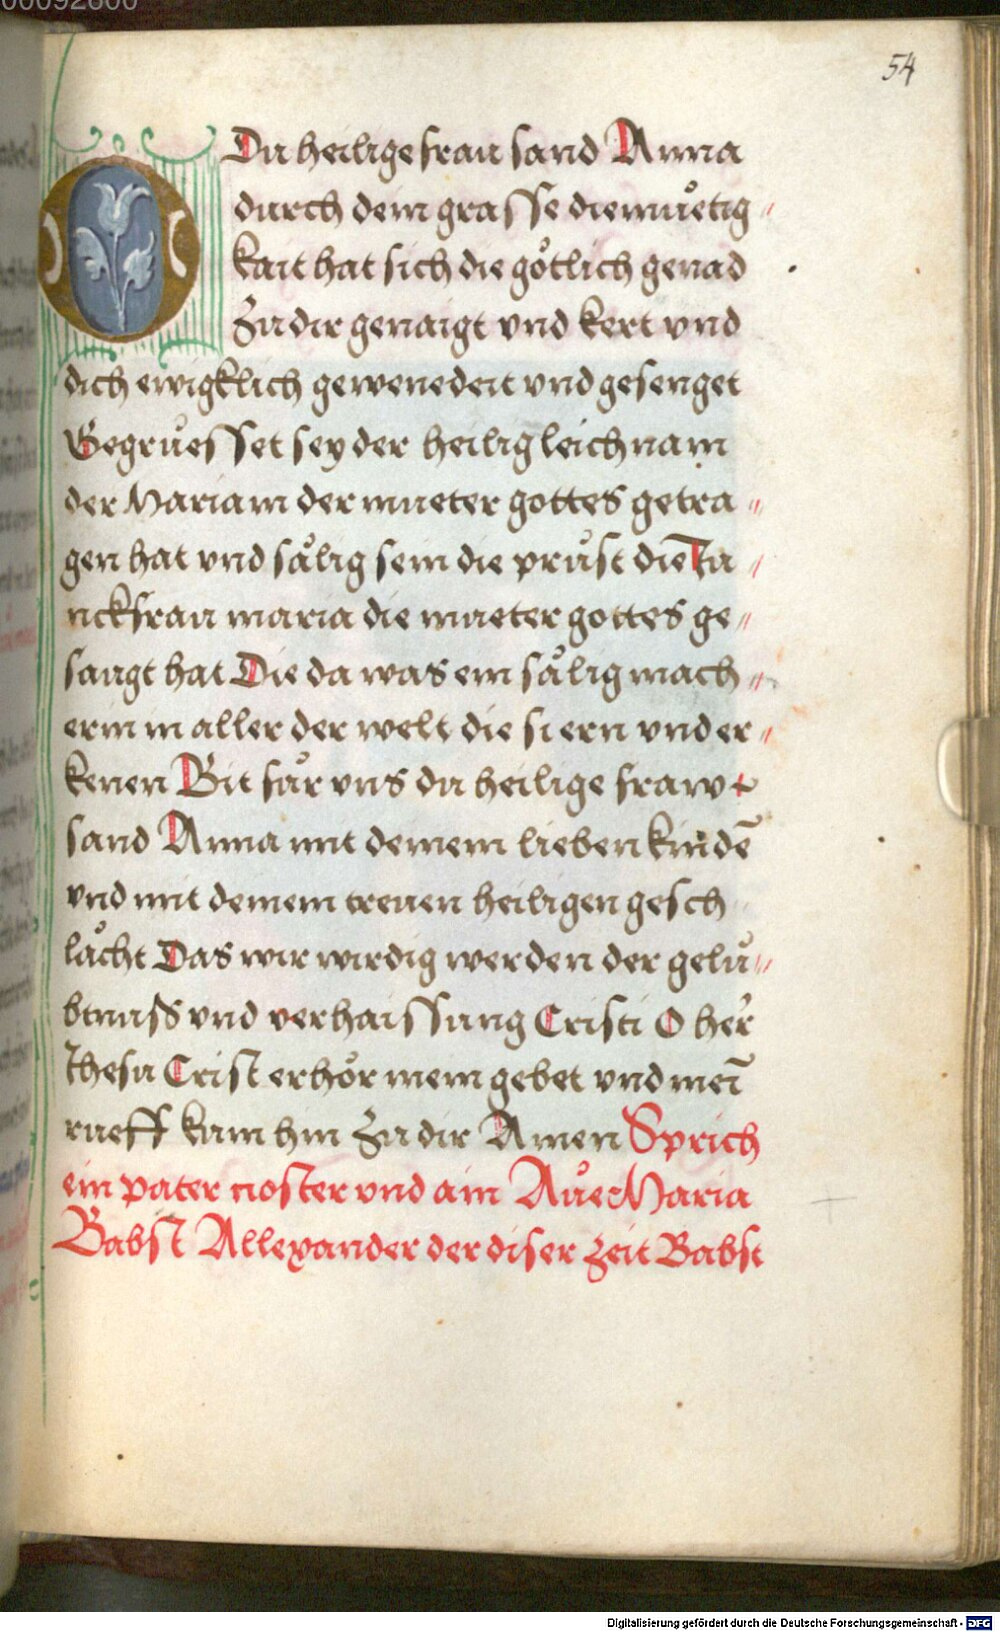 00092800
54
O Du heilige frau sand Anna
durch dein grasse diemuͤetig„
kait hat sich die goͤtlich genad
Zu dir genaigt vnd kert vnd
dich ewigklich gewenedeit vnd gesenget
Gegruͤesset sey der heilig leichnam
der Mariam der mueter gottes getra„
gen hat vnd saͤlig sein die pruͤst die Ju„
nckfrau maria die mueter gottes ge„
saugt hat Die da was ein saͤlig mach„
erin in aller der welt die si ern vnd er„
kenen Bit fuͤr vns du heilige fraw
sand Anna mit deinem lieben kindē
vnd mit deinem treuen heiligen gesch
laͤcht Das wir wirdig werden der geluͤ„
btnuss vnd verhaissung Cristi O her
Jhesu Crist erhoͤr mein gebet vnd meī
rueff kum hin Zu dir Amen Sprich
ein pater noster vnd ain Aue Maria
Babst Allexander der diser Zeit Babst
Digitalisierung gefördert durch die Deutsche Forschungsgemeinschaft - DFG